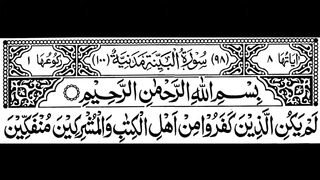 اٰيَاتُهَا ٨ (٩٨) سُوْرَةُ الْبَيِّنَةِ مَدَنِيَّةٌ (١٠٠) رُكُوْعُهَا ١
بِسْمِ اللّٰهِ الرَّحْمٰنِ الرَّحِيْمِ
لَمْ يَكُنِ الَّذِيْنَ كَفَرُوْا مِنْ اَهْلِ الْكِتٰبِ وَالْمُشْرِكِيْنَ مُنْفَكِّيْنَ